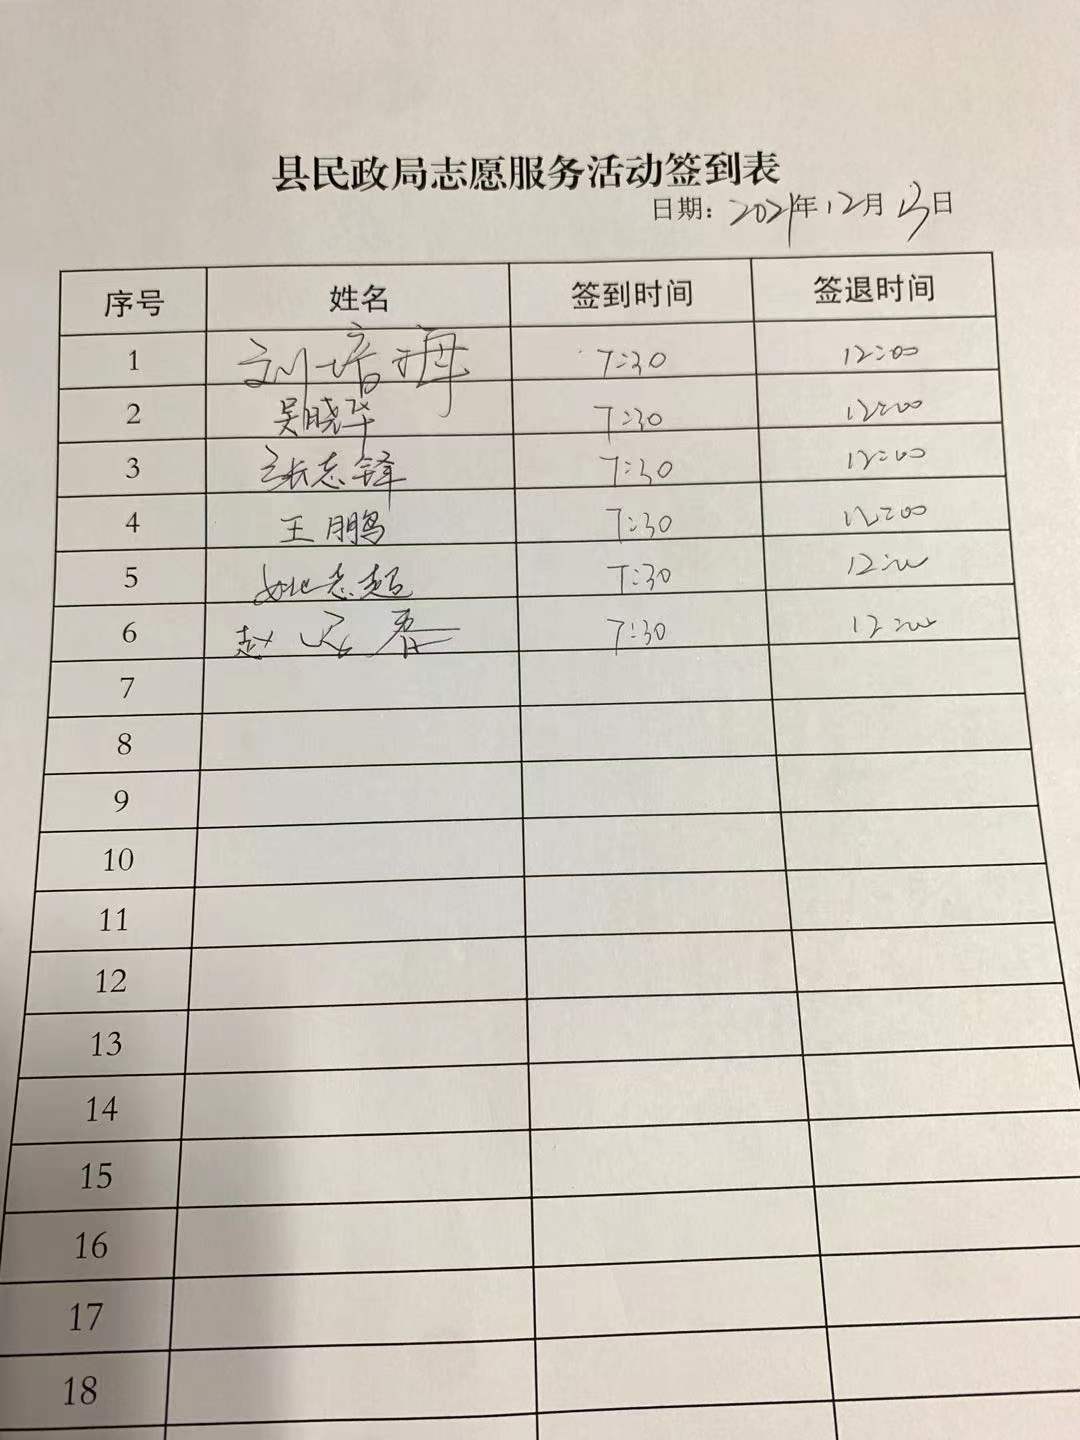 县民政局志愿服务活动签到表
日期：2021年12月13日
序号 姓名 签到时间 签退时间
1 刘培梅 7:30 12:00
2 吴晓华 7:30 12:00
3 张志锋 7:30 12:00
4 王鹏 7:30 12:00
5 姚志超 7:30 12:00
6 赵 春 7:30 12:00
7
8
9
10
11
12
13
14
15
16
17
18